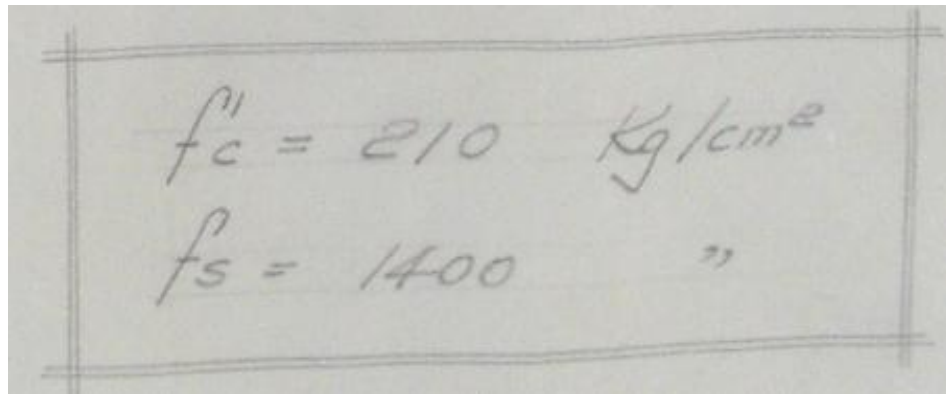 f'c = 210 Kg/cm²
fs = 1400 "